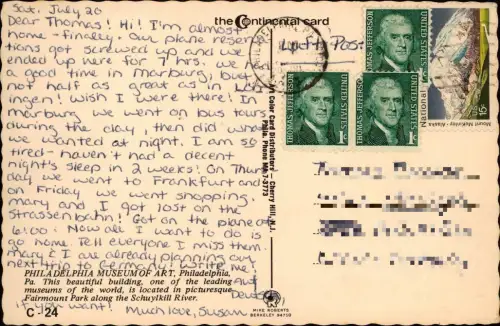 Sat. July 20
Dear Thomas! Hi! I'm almost
home - finally. Our plane reserv-
tions got screwed up and we
ended up here for 7 hrs. We had
a good time in Marburg, but
not half as great as in
ingen! Wish I were there! In
Marburg we went on bus tours
during the day, then did what
we wanted at night. I am so
tired - haven't had a decent
night's sleep in 2 weeks! On Thurs
day we went to Frankfurt and
on Friday we went shopping.
Mary and I got lost on the
strassenbahn! Got on the plane at
6:00. Now all I want to do is
go home. Tell everyone I miss them.
Mary & I are already planning our
next trip to Germany! Write me
if you want!
Much love, Susan
PHILADELPHIA MUSEUM OF ART, Philadelphia,
Pa. This beautiful building, one of the leading
museums of the world, is located in picturesque
Fairmount Park along the Schuylkill River.
C-24
the Continental card
Art Color Card Distributors - Cherry Hill, N.J.
Phila. Phone MA 7-3773
MIKE ROBERTS
BERKELEY 94710
Luft Post
THOMAS JEFFERSON
UNITED STATES
1c
THOMAS JEFFERSON
UNITED STATES
1c
THOMAS JEFFERSON
UNITED STATES
1c
UNITED STATES
National
15c
Mount McKinley Alaska